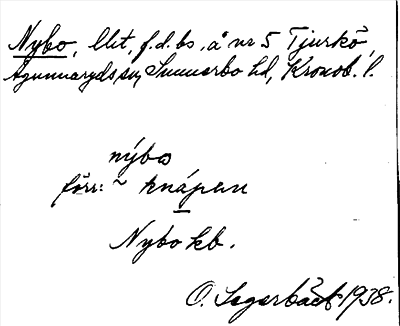 Nybo, llit, f.d. bs, å nr 5 Tjurkö,
Agunnaryds sn, Sunnerbo hd, Kronob. l.
nýbo
förr: ~ knápen
Nybo kb.
O. Segerbäck 1938.